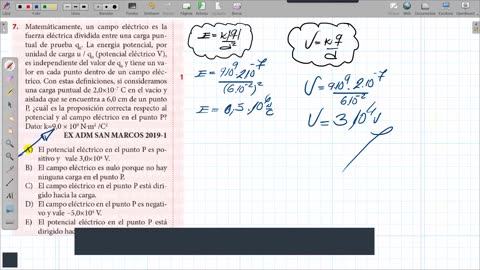 7. Matemáticamente, un campo eléctrico es la
fuerza eléctrica dividida entre una carga pun-
tual de prueba q₀. La energía potencial, por
unidad de carga u / q₀ (potencial eléctrico V),
es independiente del valor de q₀ y tiene un va-
lor en cada punto dentro de un campo eléc-
trico. Con estas definiciones, si consideramos
una carga puntual de 2,0×10⁻⁷ C en el vacío y
aislada que se encuentra a 6,0 cm de un punto
P, ¿cuál es la proposición correcta respecto al
potencial y al campo eléctrico en el punto P?
Dato: k=9,0 × 10⁹ N·m² /C²
EX ADM SAN MARCOS 2019-1
A) El potencial eléctrico en el punto P es po-
sitivo y vale 3,0×10⁴ V.
B) El campo eléctrico es nulo porque no hay
ninguna carga en el punto P.
C) El campo eléctrico en el punto P está diri-
gido hacia la carga.
D) El campo eléctrico en el punto P es negati-
vo y vale −5,0×10⁴ V.
E) El potencial eléctrico en el punto P está
dirigido hac
1
E = k|q|/d²
E = 9.10⁹.2.10⁻⁷/(6.10⁻²)²
E = 0,5.10⁶
V = k.q/d
V = 9.10⁹.2.10⁻⁷/6.10⁻²
V = 3.10⁴ V